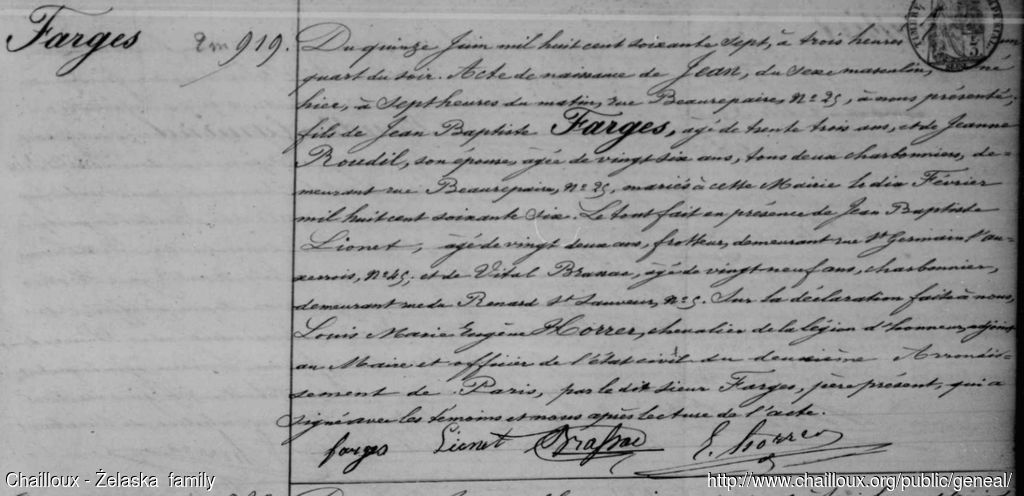 Farges 2m 919. Du quinze Juin mil huit cent soixante sept, à trois heures un
quart du soir. Acte de naissance de Jean, du sexe masculin, né
hier, à sept heures du matin, rue Beaurepaire, No 25, à nous présenté,
fils de Jean Baptiste Farges, agé de trente trois ans, et de Jeanne
Roudil, son épouse, agée de vingt six ans, tous deux charbonniers, de-
meurant rue Beaurepaire, No 25, mariés à cette Mairie le dix Février
mil huit cent soixante six. Le tout fait en présence de Jean Baptiste
Lionet, âgé de vingt deux ans, frotteur, demeurant rue St Germain l'au-
xerrois, No 45, et de Vital Brassac, âgé de vingt neuf ans, charbonnier,
demeurant rue du Renard St Sauveur, No 5. Sur la déclaration faite à nous,
Louis Marie Eugène Horrer, chevalier de la légion d'honneur, adjoint
au Maire et officier de l'état civil du deuxième Arrondis-
sement de Paris, par le dit sieur Farges, père présent, qui a
signé avec les témoins et nous après lecture de l'acte.
farges Lionet Brassac E. horrer
Chailloux - Żelaska family http://www.chailloux.org/public/geneal/